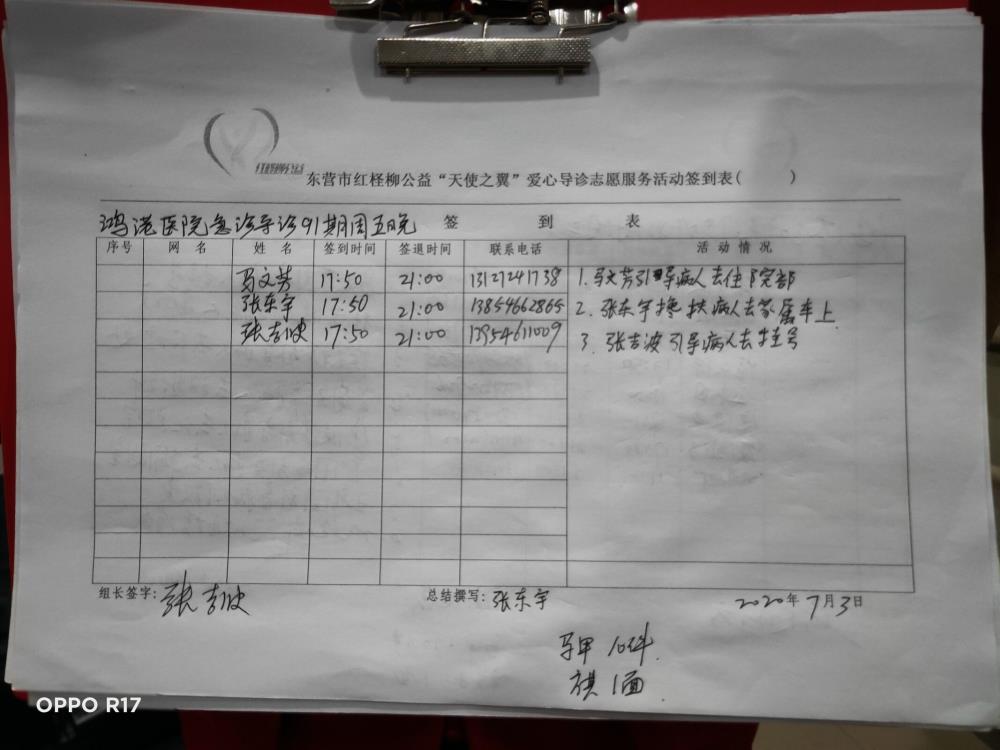 东营市红柽柳公益“天使之翼”爱心导诊志愿服务活动签到表( )
鸿港医院急诊导诊91期周五晚 签 到 表
序号 网 名 姓 名 签到时间 签退时间 联系电话 活 动 情 况
马文芳 17:50 21:00 13127241738 1.马文芳引导病人去住院部
张东宇 17:50 21:00 13854662865 2.张东宇搀扶病人去家属车上
张吉波 17:50 21:00 13954611009 3.张吉波引导病人去挂号
组长签字:张吉波 总结撰写:张东宇 2020年7月3日
马甲 10件.
旗 1面
OPPO R17